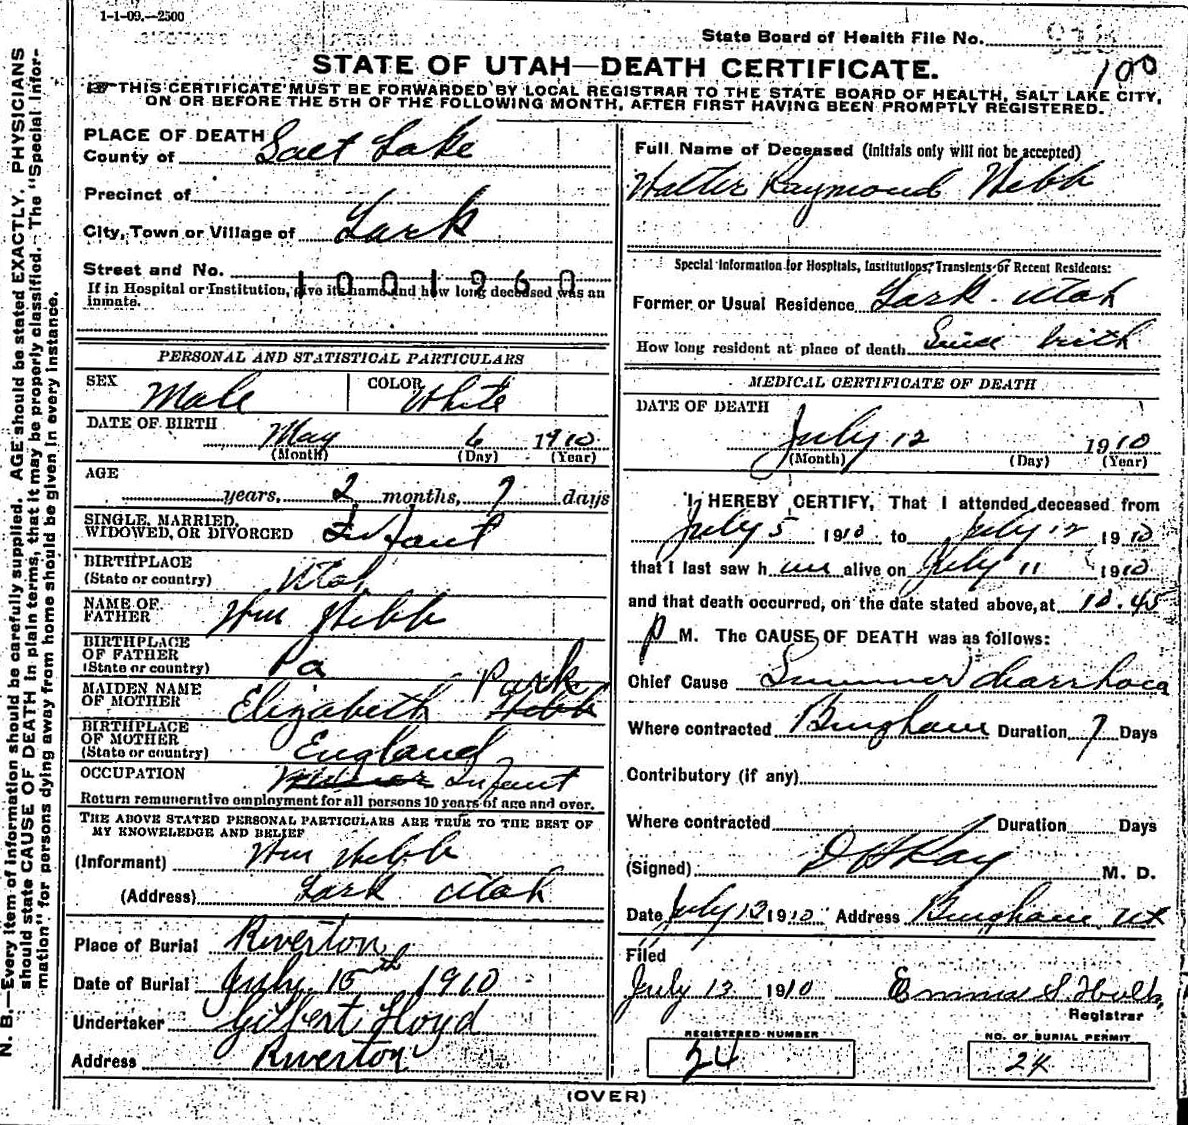 1-1-09.—2500
State Board of Health File No.
100
STATE OF UTAH—DEATH CERTIFICATE.
☞ THIS CERTIFICATE MUST BE FORWARDED BY LOCAL REGISTRAR TO THE STATE BOARD OF HEALTH, SALT LAKE CITY,
ON OR BEFORE THE 5TH OF THE FOLLOWING MONTH, AFTER FIRST HAVING BEEN PROMPTLY REGISTERED.
N. B.—Every item of information should be carefully supplied. AGE should be stated EXACTLY. PHYSICIANS
should state CAUSE OF DEATH in plain terms, that it may be properly classified. The "Special Infor-
mation" for persons dying away from home should be given in every instance.
PLACE OF DEATH
County of Salt Lake
Precinct of
City, Town or Village of Lark
Street and No.
1001960
If in Hospital or Institution, give its name and how long deceased was an
inmate.
PERSONAL AND STATISTICAL PARTICULARS
SEX Male COLOR White
DATE OF BIRTH May 6 1910
(Month) (Day) (Year)
AGE
years, 2 months, 7 days
SINGLE, MARRIED,
WIDOWED, OR DIVORCED Infant
BIRTHPLACE
(State or country) Utah
NAME OF
FATHER Wm Webb
BIRTHPLACE
OF FATHER
(State or country) Pa
MAIDEN NAME
OF MOTHER Elizabeth Webb Park
BIRTHPLACE
OF MOTHER
(State or country) England
OCCUPATION Infant
Return remunerative employment for all persons 10 years of age and over.
THE ABOVE STATED PERSONAL PARTICULARS ARE TRUE TO THE BEST OF
MY KNOWELEDGE AND BELIEF
(Informant) Wm Webb
(Address) Lark Utah
Place of Burial Riverton
Date of Burial July 15th 1910
Undertaker Gilbert Lloyd
Address Riverton
Full Name of Deceased (Initials only will not be accepted)
Walter Raymond Webb
Special Information for Hospitals, Institutions, Transients or Recent Residents:
Former or Usual Residence Lark Utah
How long resident at place of death Since birth
MEDICAL CERTIFICATE OF DEATH
DATE OF DEATH
July 12 1910
(Month) (Day) (Year)
I HEREBY CERTIFY, That I attended deceased from
July 5 1910 to July 12 1910
that I last saw him alive on July 11 1910
and that death occurred, on the date stated above, at 10.45
P M. The CAUSE OF DEATH was as follows:
Chief Cause Summer diarrhoea
Where contracted Bingham Duration 7 Days
Contributory (if any)
Where contracted Duration Days
(Signed) D H Ray M. D.
Date July 13 1910 Address Bingham Ut
Filed
July 13 1910 Emma S.
Registrar
REGISTERED NUMBER
24
NO. OF BURIAL PERMIT
24
(OVER)